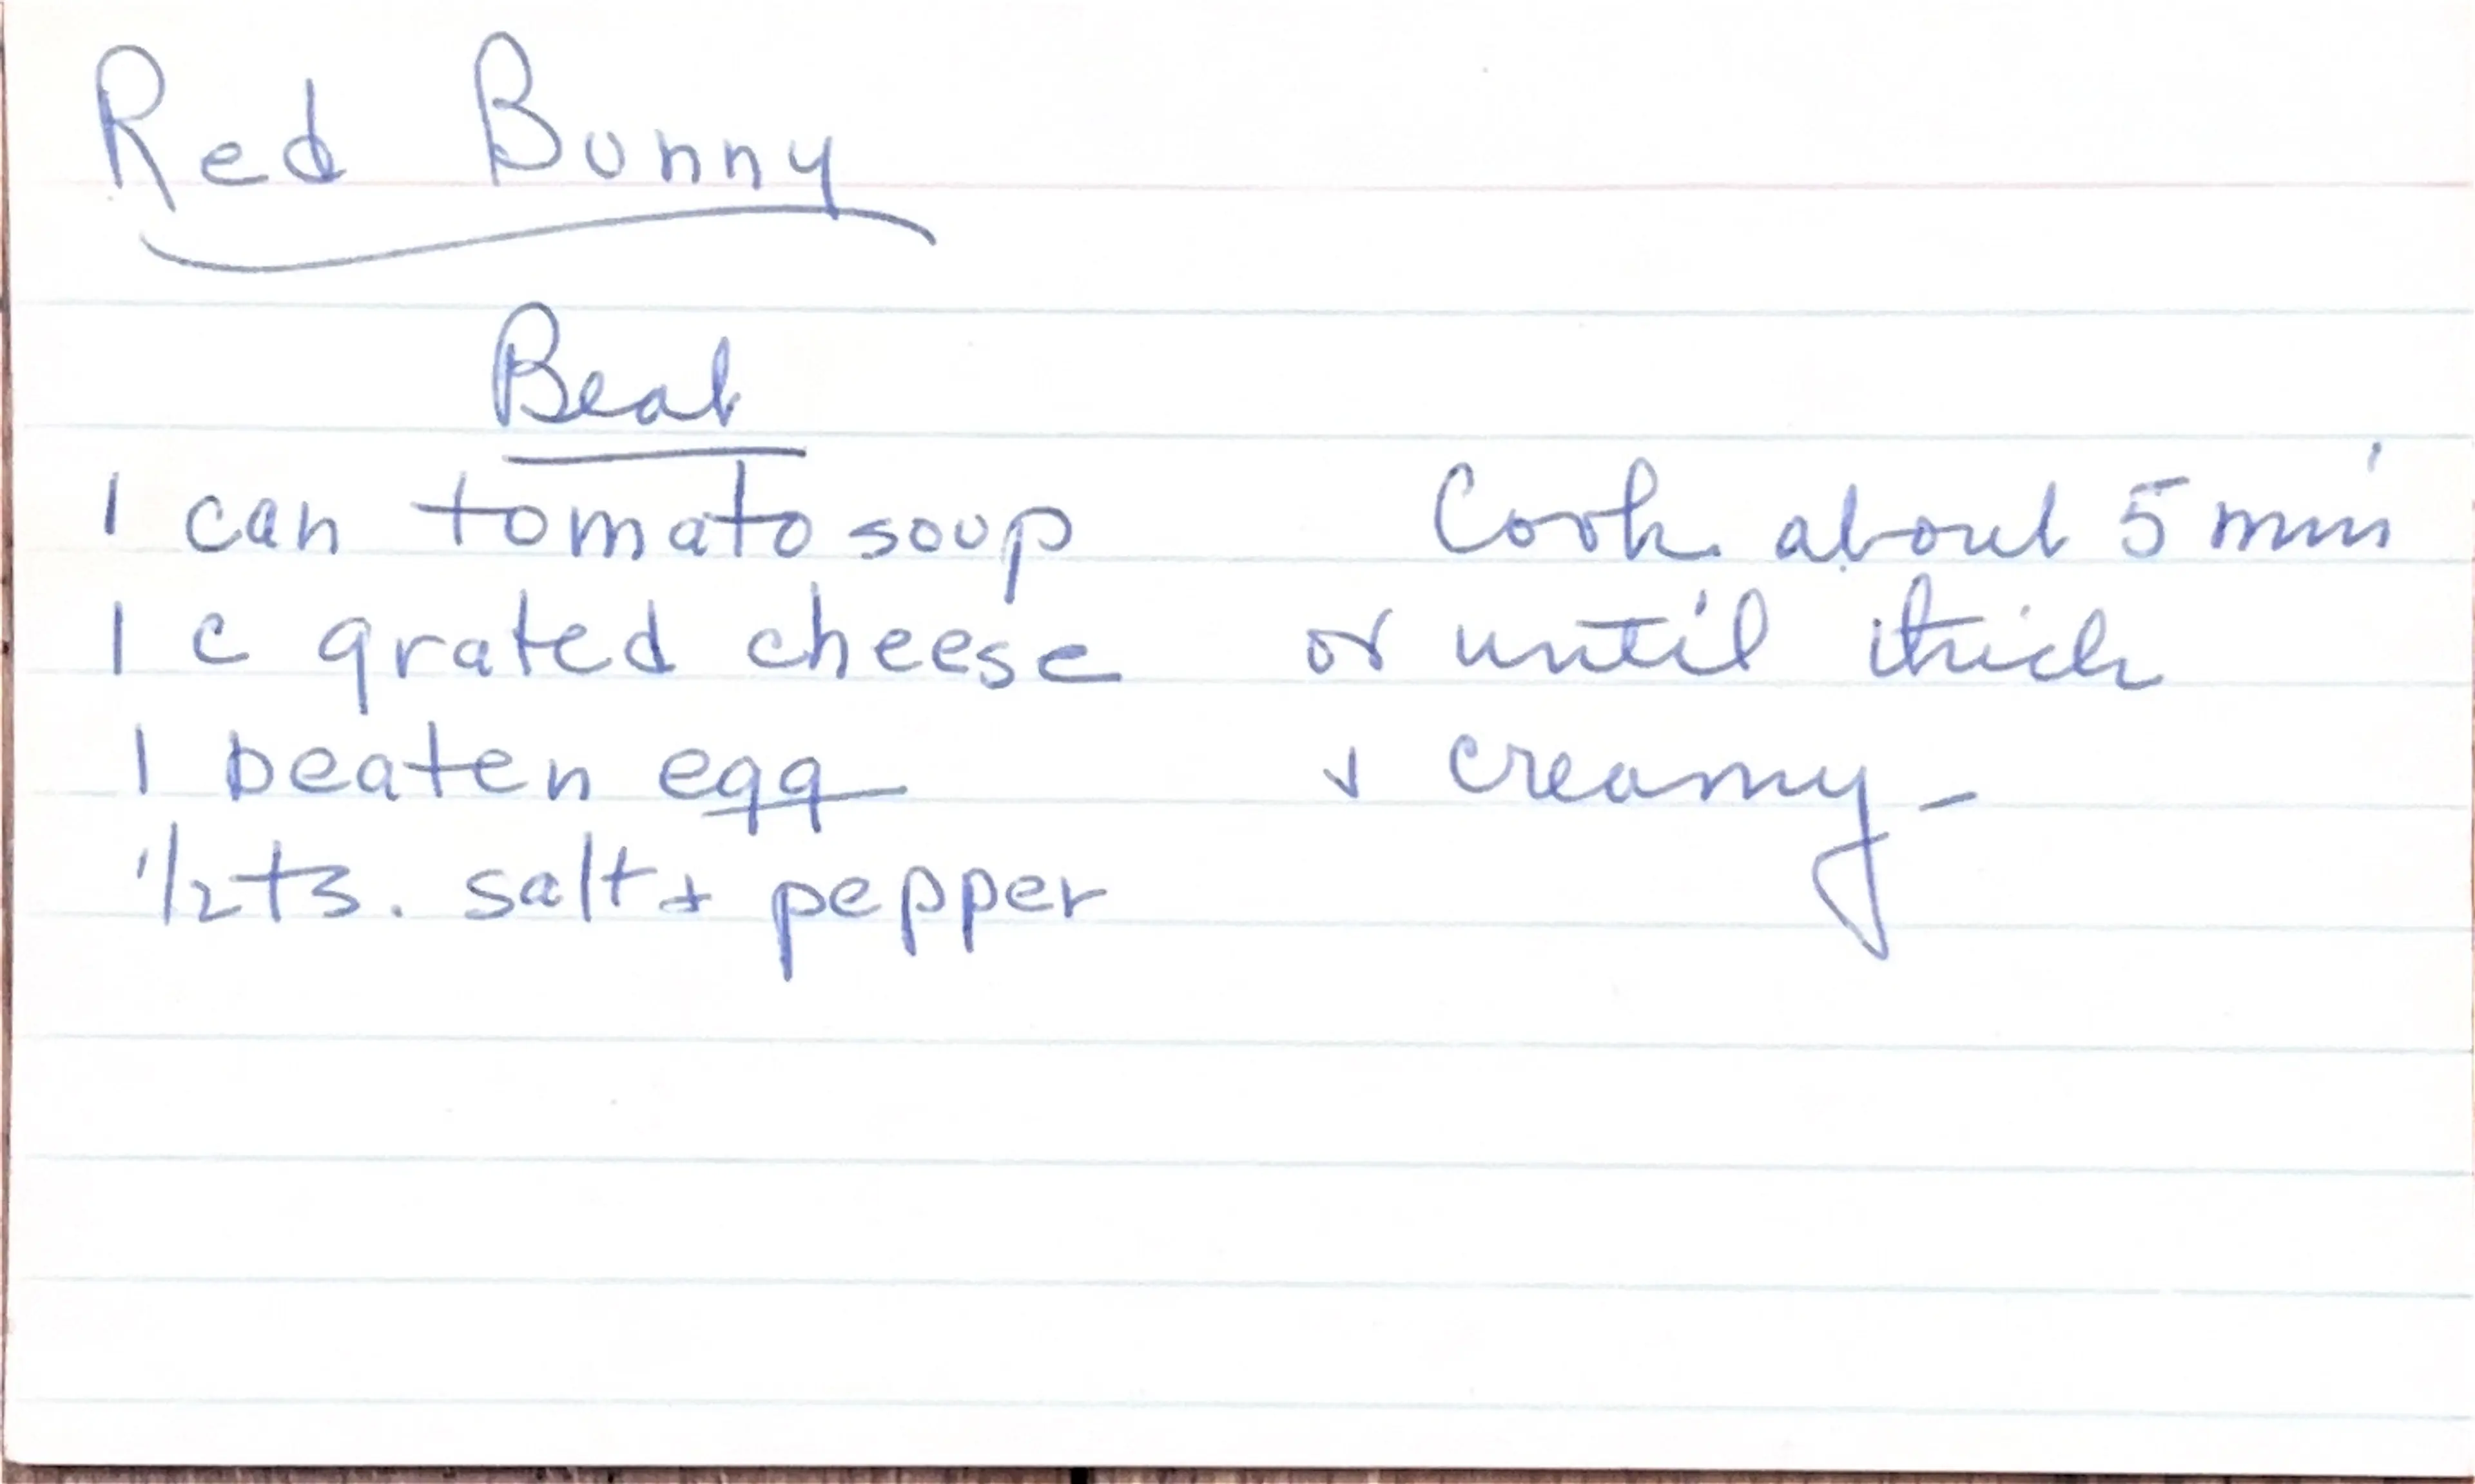 Red Bunny
Beat
1 can tomato soup
1 c grated cheese
1 beaten egg
1/2 ts. salt + pepper
Cook about 5 min
or until thick
+ creamy -